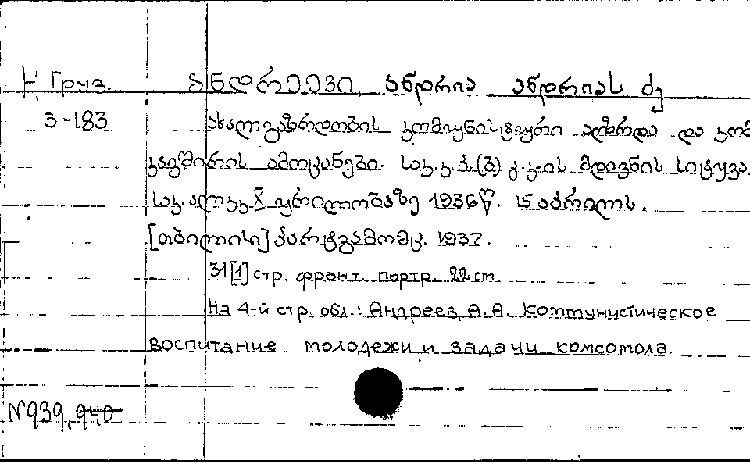 Груз. ანდრეევი ანდრია ანდრიას ძე
3-183 ახალგაზრდობის კომუნისტური აღზრდა და კომ
კავშირის ამოცანები. საკ. კ. პ. (ბ) ც. კ.-ის მდივნის სიტყვა
საკ. ალკკ X ყრილობაზე 1936 წ. 15 აპრილს.
[თბილისი] პარტგამომც. 1937.
31 [1] стр. фронт. портр. 22 см
На 4-й стр. обл.: Андреев, А.А. Коммунистическое
воспитание молодежи и задачи комсомола.
№939, 940